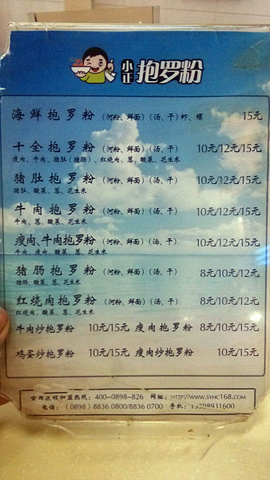 小仕 抱罗粉
海鲜抱罗粉 (河粉、鲜面) (汤、干) 虾、螺 15元
十全抱罗粉 (河粉、鲜面) (汤、干) 10元/12元/15元
瘦肉、牛肉、猪肚(猪肠)、红烧肉、葱、酸菜、花生米
猪肚抱罗粉 (河粉、鲜面) (汤、干) 10元/12元/15元
猪肚、酸菜、葱、花生米
牛肉抱罗粉 (河粉、鲜面) (汤、干) 10元/12元/15元
牛肉、葱、酸菜、花生米
瘦肉、牛肉抱罗粉 (河粉、鲜面) (汤、干) 10元/12元/15元
牛肉、瘦肉、葱、酸菜、花生米
猪肠抱罗粉 (河粉、鲜面) (汤、干) 8元/10元/12元
猪肠、酸菜、葱、花生米
红烧肉抱罗粉 (河粉、鲜面) (汤、干) 8元/10元/12元
红烧肉、酸菜、葱、花生米
牛肉炒抱罗粉 10元/15元 瘦肉抱罗粉 8元/10元/15元
鸡蛋炒抱罗粉 10元/15元 瘦肉炒抱罗粉 10元/15元
加盟热线: 400-0898-826 网址:
电话: (0898) 8836 0800/8836 0700 手机: